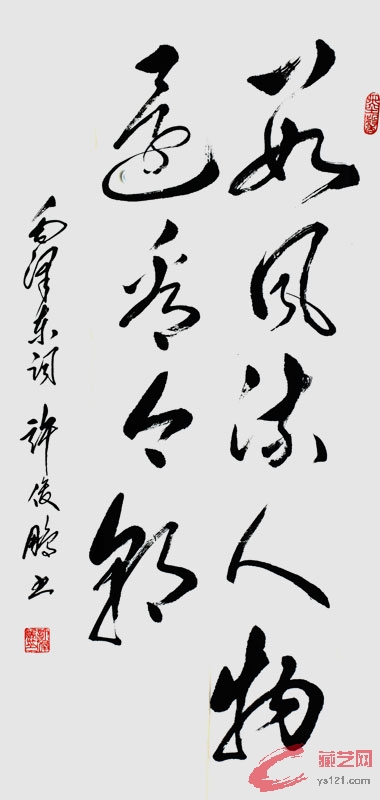 数风流人物
还看今朝
毛泽东词 许俊鹏书
藏艺网
ys121.com